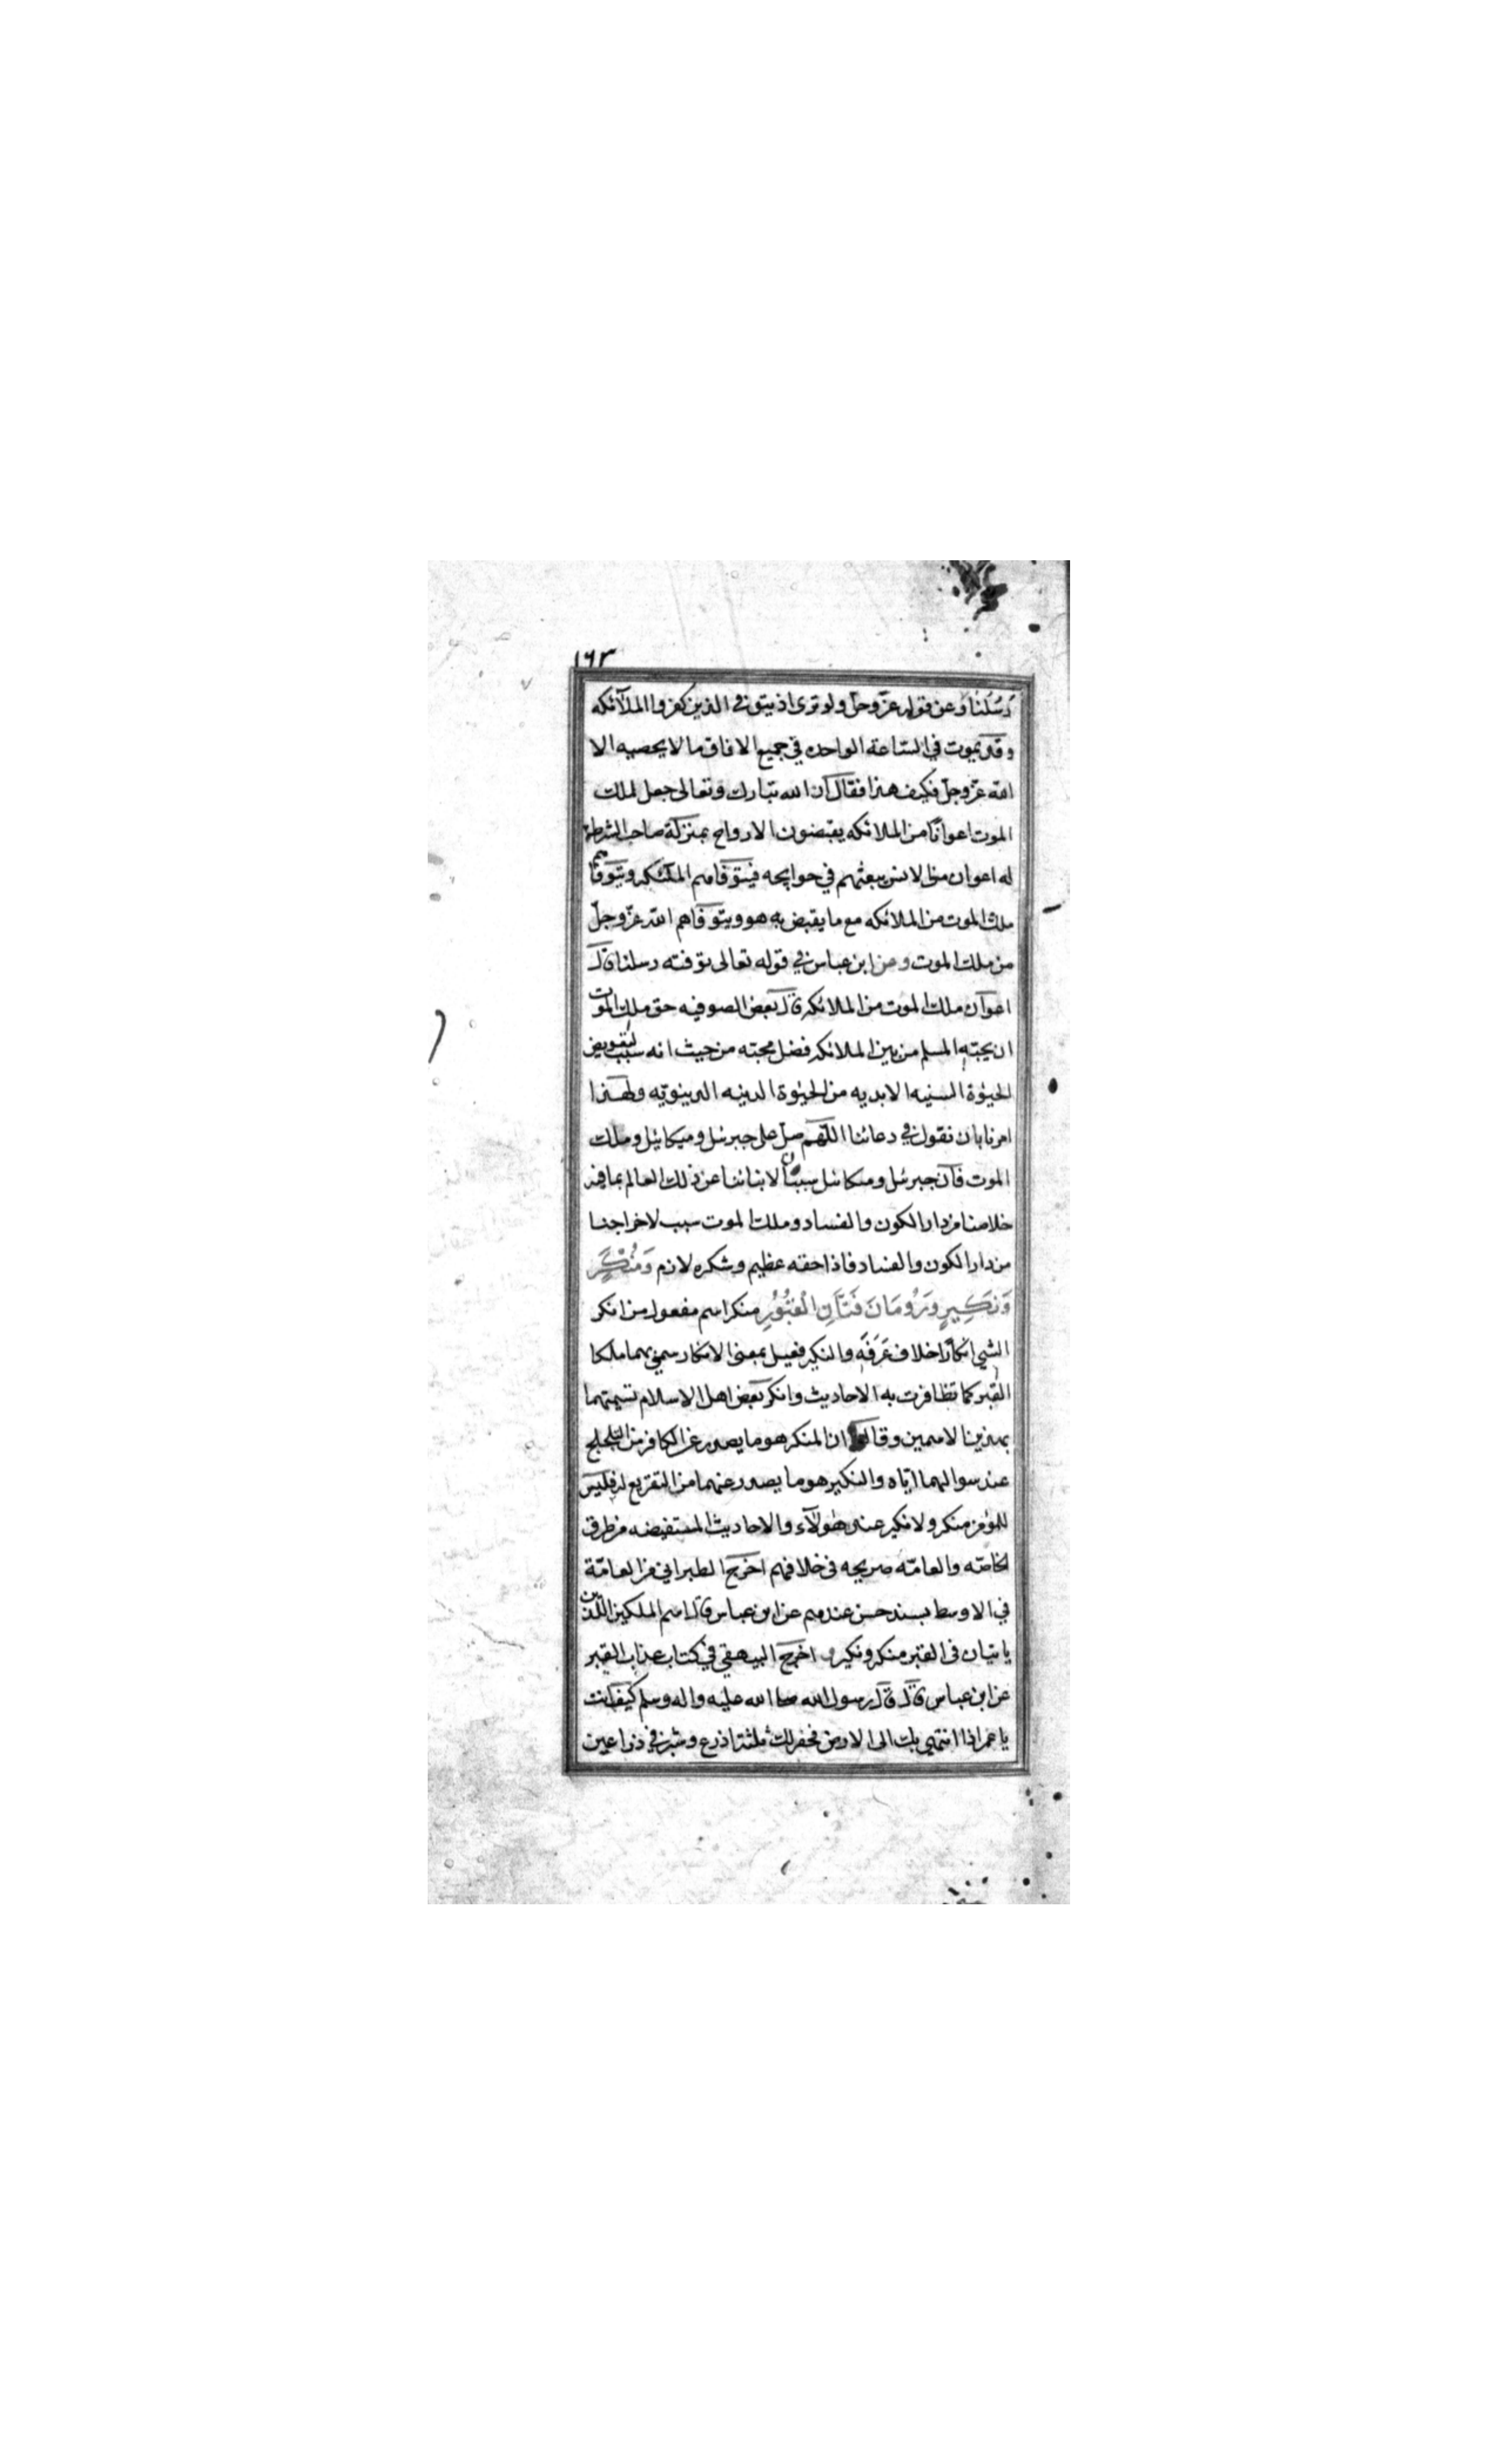 ١٦٣
رُسُلُنا وعن قوله عزّ وجلّ ولو ترى اذ يتوفى الذين كفروا الملآئكه
وقد يموت في السّاعة الواحده في جميع الافاق ما لا يحصيه الا
الله عزّ وجلّ فكيف هذا فقال ان الله تبارك وتعالى جعل لملك
الموت اعوانًا من الملائكه يقبضون الارواح بمنزلة صاحب الشرطه
له اعوان من الانس يبعثهم في حوايجه فيتوفاهم الملئكه ويتوفاهم
ملك الموت من الملائكه مع ما يقبض به هو ويتوفاهم الله عزّ وجلّ
من ملك الموت وعن ابن عباس في قوله تعالى توفته رسلنا قال
اعوان ملك الموت من الملائكه قال بعض الصوفيه حق ملك الموت
ان يحبّه المسلم من بين الملائكه فضل محبته من حيث انه سبب لتقويض
الحيٰوة السنيه الابديه من الحيٰوة الدنيه الدينويّه ولهذا
امرنا بان نقول في دعائنا اللّهم صل على جبرئل وميكائيل وملك
الموت فانّ جبرئل ومىكائل سببان لابنائنا عن ذلك العالم بما فيه
خلاصنا من دار الكون والفساد وملك الموت سبب لاخراجنا
من دار الكون والفساد فاذا حقه عظيم وشكره لازم وَمُنْكَرٍ
وَنَكِيرٍ وَرُومَانَ فَتَّانِ الْقُبُورِ منكر اسم مفعول من انكر
الشي انكارًا خلاف عَرَفَه والنكير فعيل بمعنى الانكار سمّي بهما ملكا
القبر كما تظافرت به الاحاديث وانكر بعض اهل الاسلام تسميتهما
بهذين الاسمين وقالوا ان المنكر هو ما يصدر عن الكافر من التلجلج
عند سوالهما ايّاه والنكير هو ما يصدر عنهما من التقريع له فليس
للمؤمن منكر ولا نكير عند هٰؤلآء والاحاديث المستفيضه من طرق
الخاصّه والعامّه صريحه في خلافهم اخرج الطبراني من العامّة
في الاوسط بسند حسن عندهم عن ابن عباس قال اسم الملكين اللّذين
ياتيان في القبر منكر ونكير و اخرج البيهقي في كتاب عذاب القبر
عن ابن عباس قال قال رسول الله صلى الله عليه واله وسلم كيف انت
يا عمر اذا انتهى بك الى الارض فحفر لك ثلثة اذرع وشبر في ذراعين